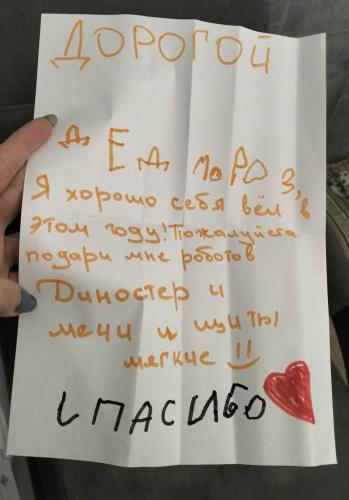 ДОРОГОЙ
ДЕД МОРОЗ,
Я хорошо себя вёл в
этом году! Пожалуйста
подари мне роботов
Диностер и
мечи и щиты
мягкие !!
СПАСИБО